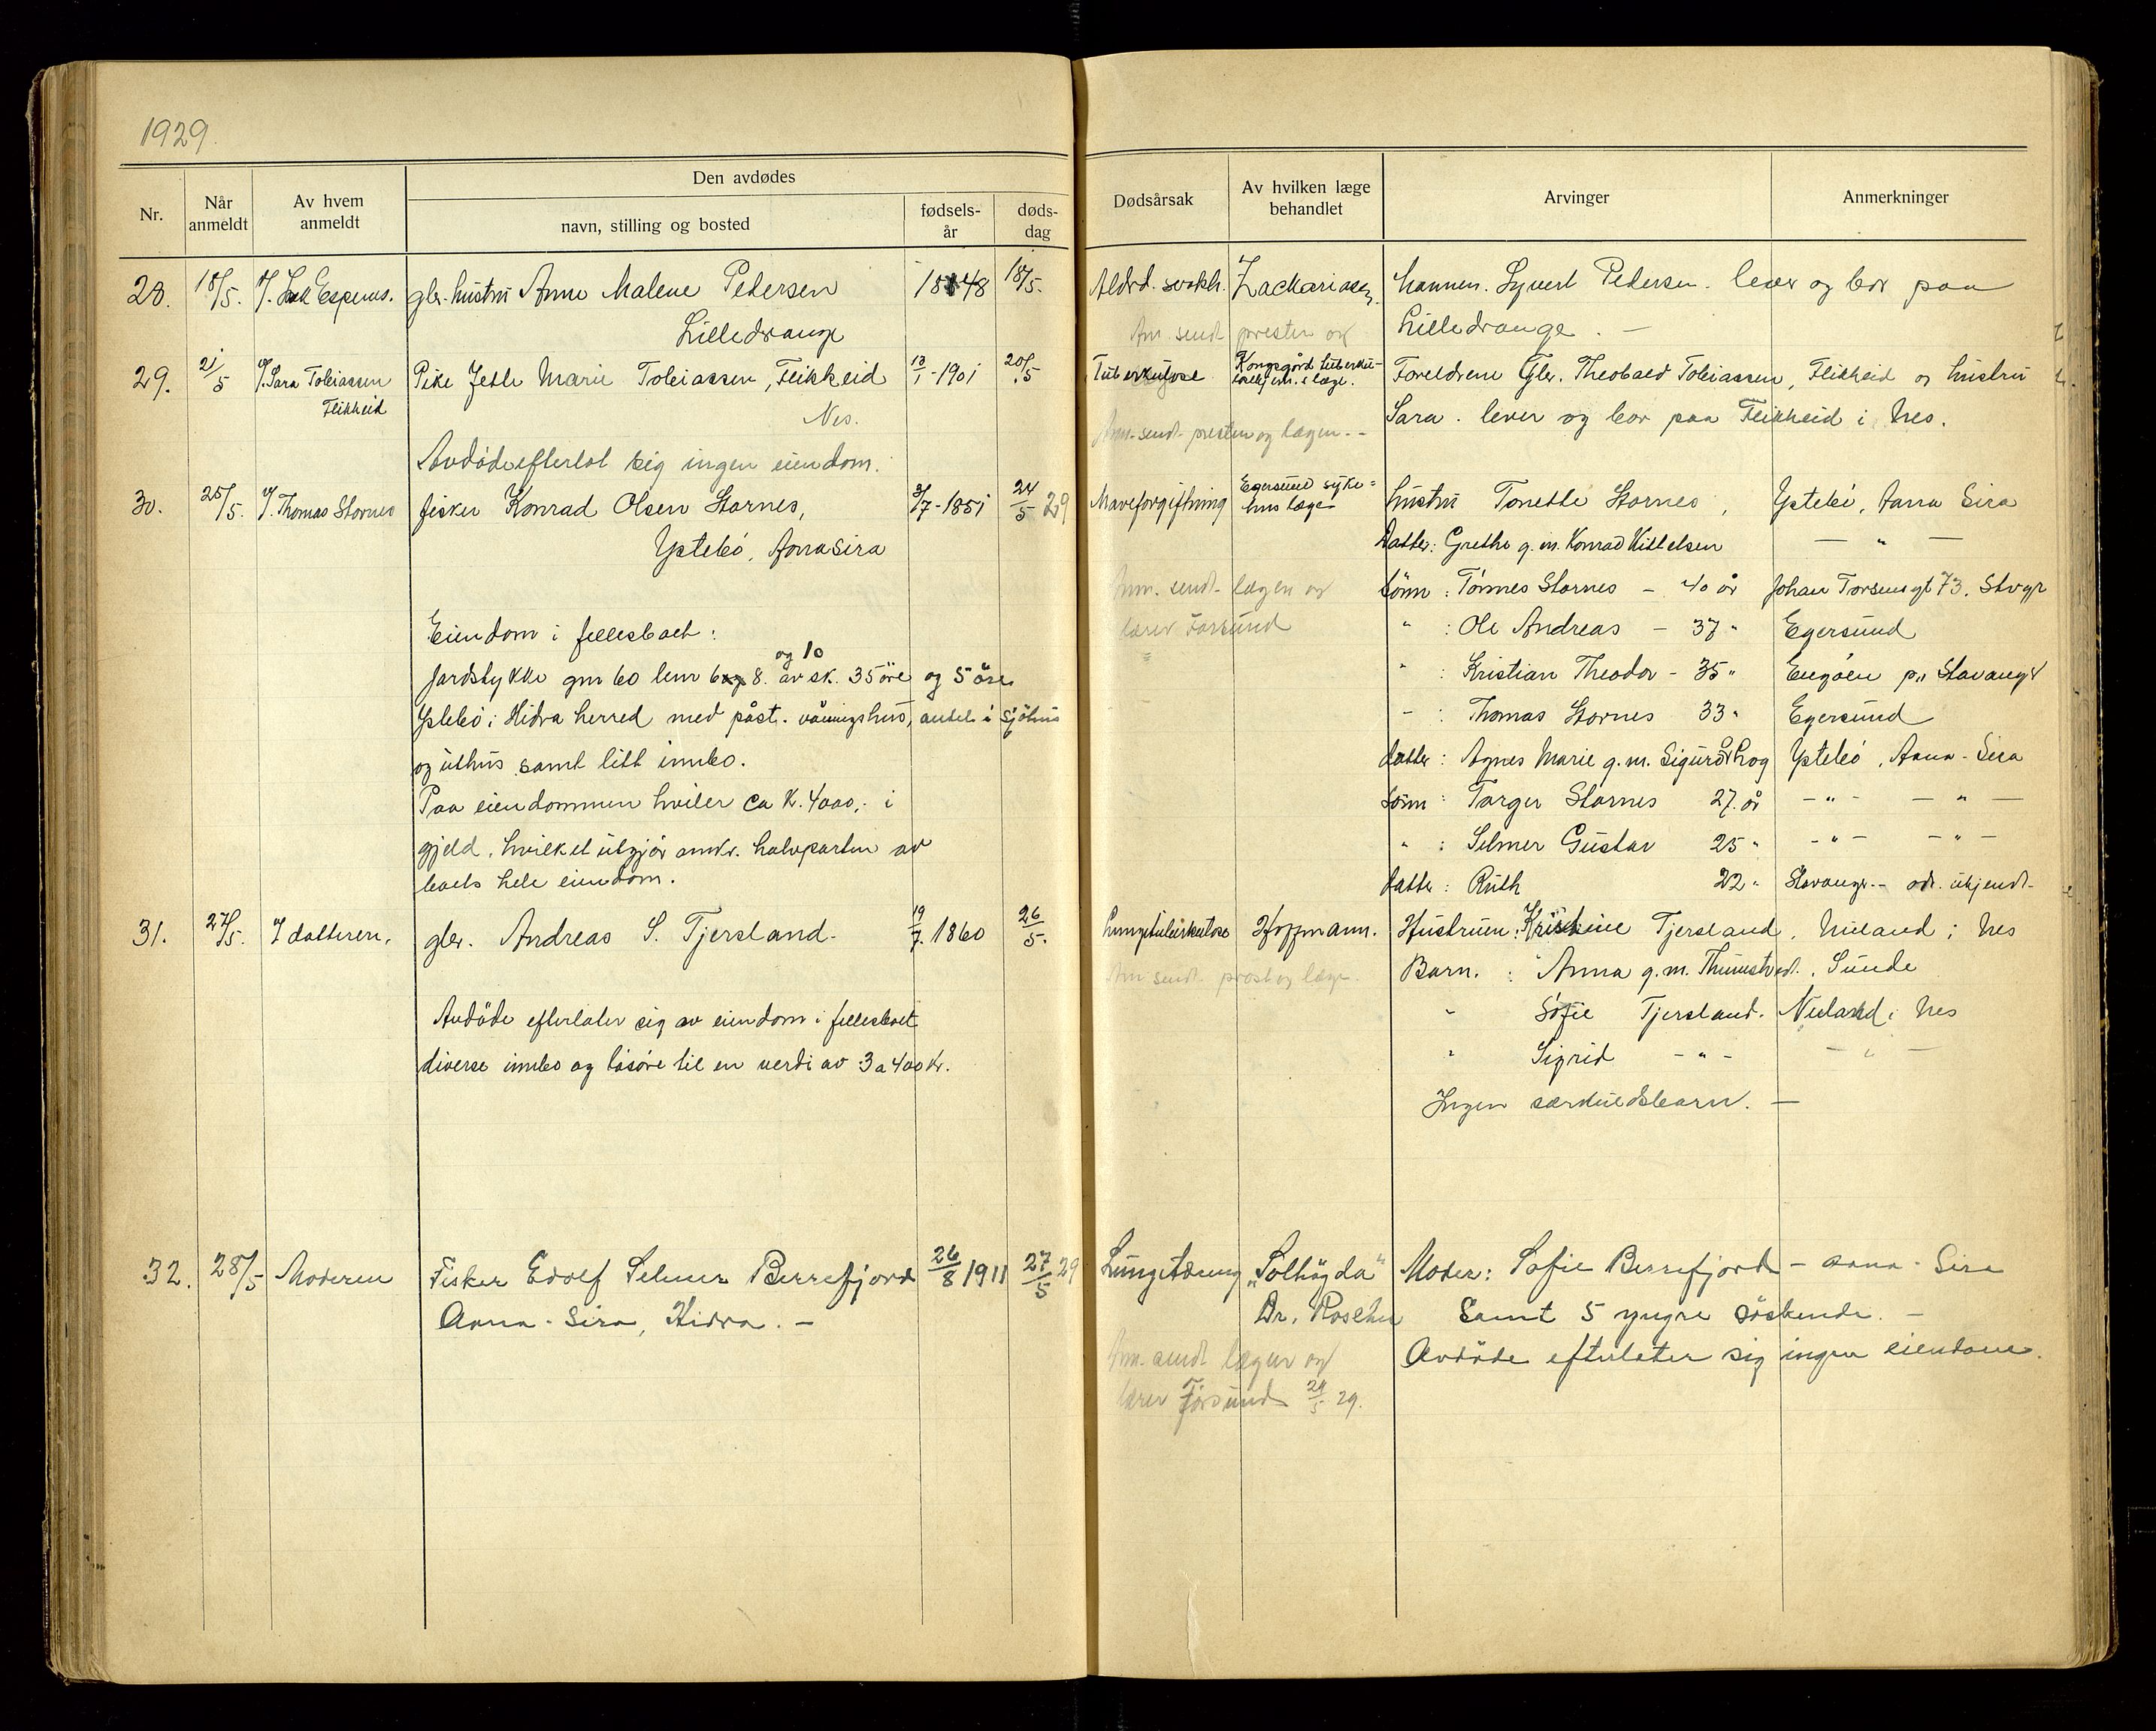 1929.
Nr.
Når anmeldt
Av hvem anmeldt
Den avdødes
navn, stilling og bosted
fødsels-år
døds-dag
Dødsårsak
Av hvilken læge behandlet
Arvinger
Anmerkninger
28. 18/5. gbr. hustru Anne Malene Pedersen 1848 18/5. Zackariasen. Mannen. Syvert Pedersen. lever og bor paa
Lilledrange Anm. sendt presten og Lilledrange. —
29. 21/5 v/. Sara Tobiassen Pike Jette Marie Tobiassen, Flikkeid 13/1 - 1901 20/5. Tuberkulose Kongsgård tuberku- Foreldrene Gbr. Theobald Tobiassen, Flikkeid og hustru
Flikkeid Nes. Sara. lever og bor paa Flikkeid i Nes.
Anm. sendt presten og lægen. -
Avdöde efterlot sig ingen eiendom.
30. 25/5. v/. Thomas Stornes fisker Konrad Olsen Stornes, 3/7 - 1851 24/5 29 Maveforgiftning Egersund syke= hus læge hustru Tonette Stornes, Ystebö, Aana Sira
Ystebö, Aana Sira Datter: Grethe g. m. Konrad Kittelsen — " —
Anm. sendt lægen og sönn: Tönnes Stornes - 40 år Johan Torsensgt 73. Stvgr
Eiendom i fellesboet: Farsund " : Ole Andreas - 37 " Egersund
og 10
Jordstykke gnr 60 bnr 6 8. av sk. 35 öre og 5 öre " : Kristian Theodor - 35 " Engöen p.. Stavanger
Ystebö i Hidra herred med påst. våningshus, andel i sjöhus - : Thomas Stornes 33 " Egersund
og uthus samt litt innbo. datter: Agnes Marie g. m. Sigurd Log Ystebö, Aana - Sira
Paa eiendommen hviler ca K. 4000,- i sönn: Torger Stornes 27 år - " - — " —
gjeld, hvilket utgjör omkr. halvparten av " : Selmer Gustav 25 " - " - - " -
boets hele eiendom. datter: Ruth 22 " Stavanger - adr. ukjendt -
31. 27/5. v/ datteren. gbr. Andreas S. Tjersland - 19/7. 1860 26/5. Lungetuberkulose Hoffmann. Hustruen: Kristine Tjersland, Nuland i Nes
Anm sendt prest og læge Barn. : Anna g. m. Sunde
Avdöde efterlater sig av eiendom i fellesboet " Sofie Tjersland. Nuland i Nes
diverse innbo og lösöre til en verdi av 3 a 400 kr. " Sigrid - " - — " —
Ingen særkuldsbarn. —
32. 28/5 Moderen Fisker Edolf Selmer Berrefjord 26/8 1911 27/5 29 Lungetæring „Solhögda" Moder: Sofie Berrefjord - Aana - Sira
Aana - Sira, Hidra. - Dr. Samt 5 yngre söskende. -
Anm. sendt lægen og Avdöde efterlater sig ingen eiendom.
Farsund 29/5 29.